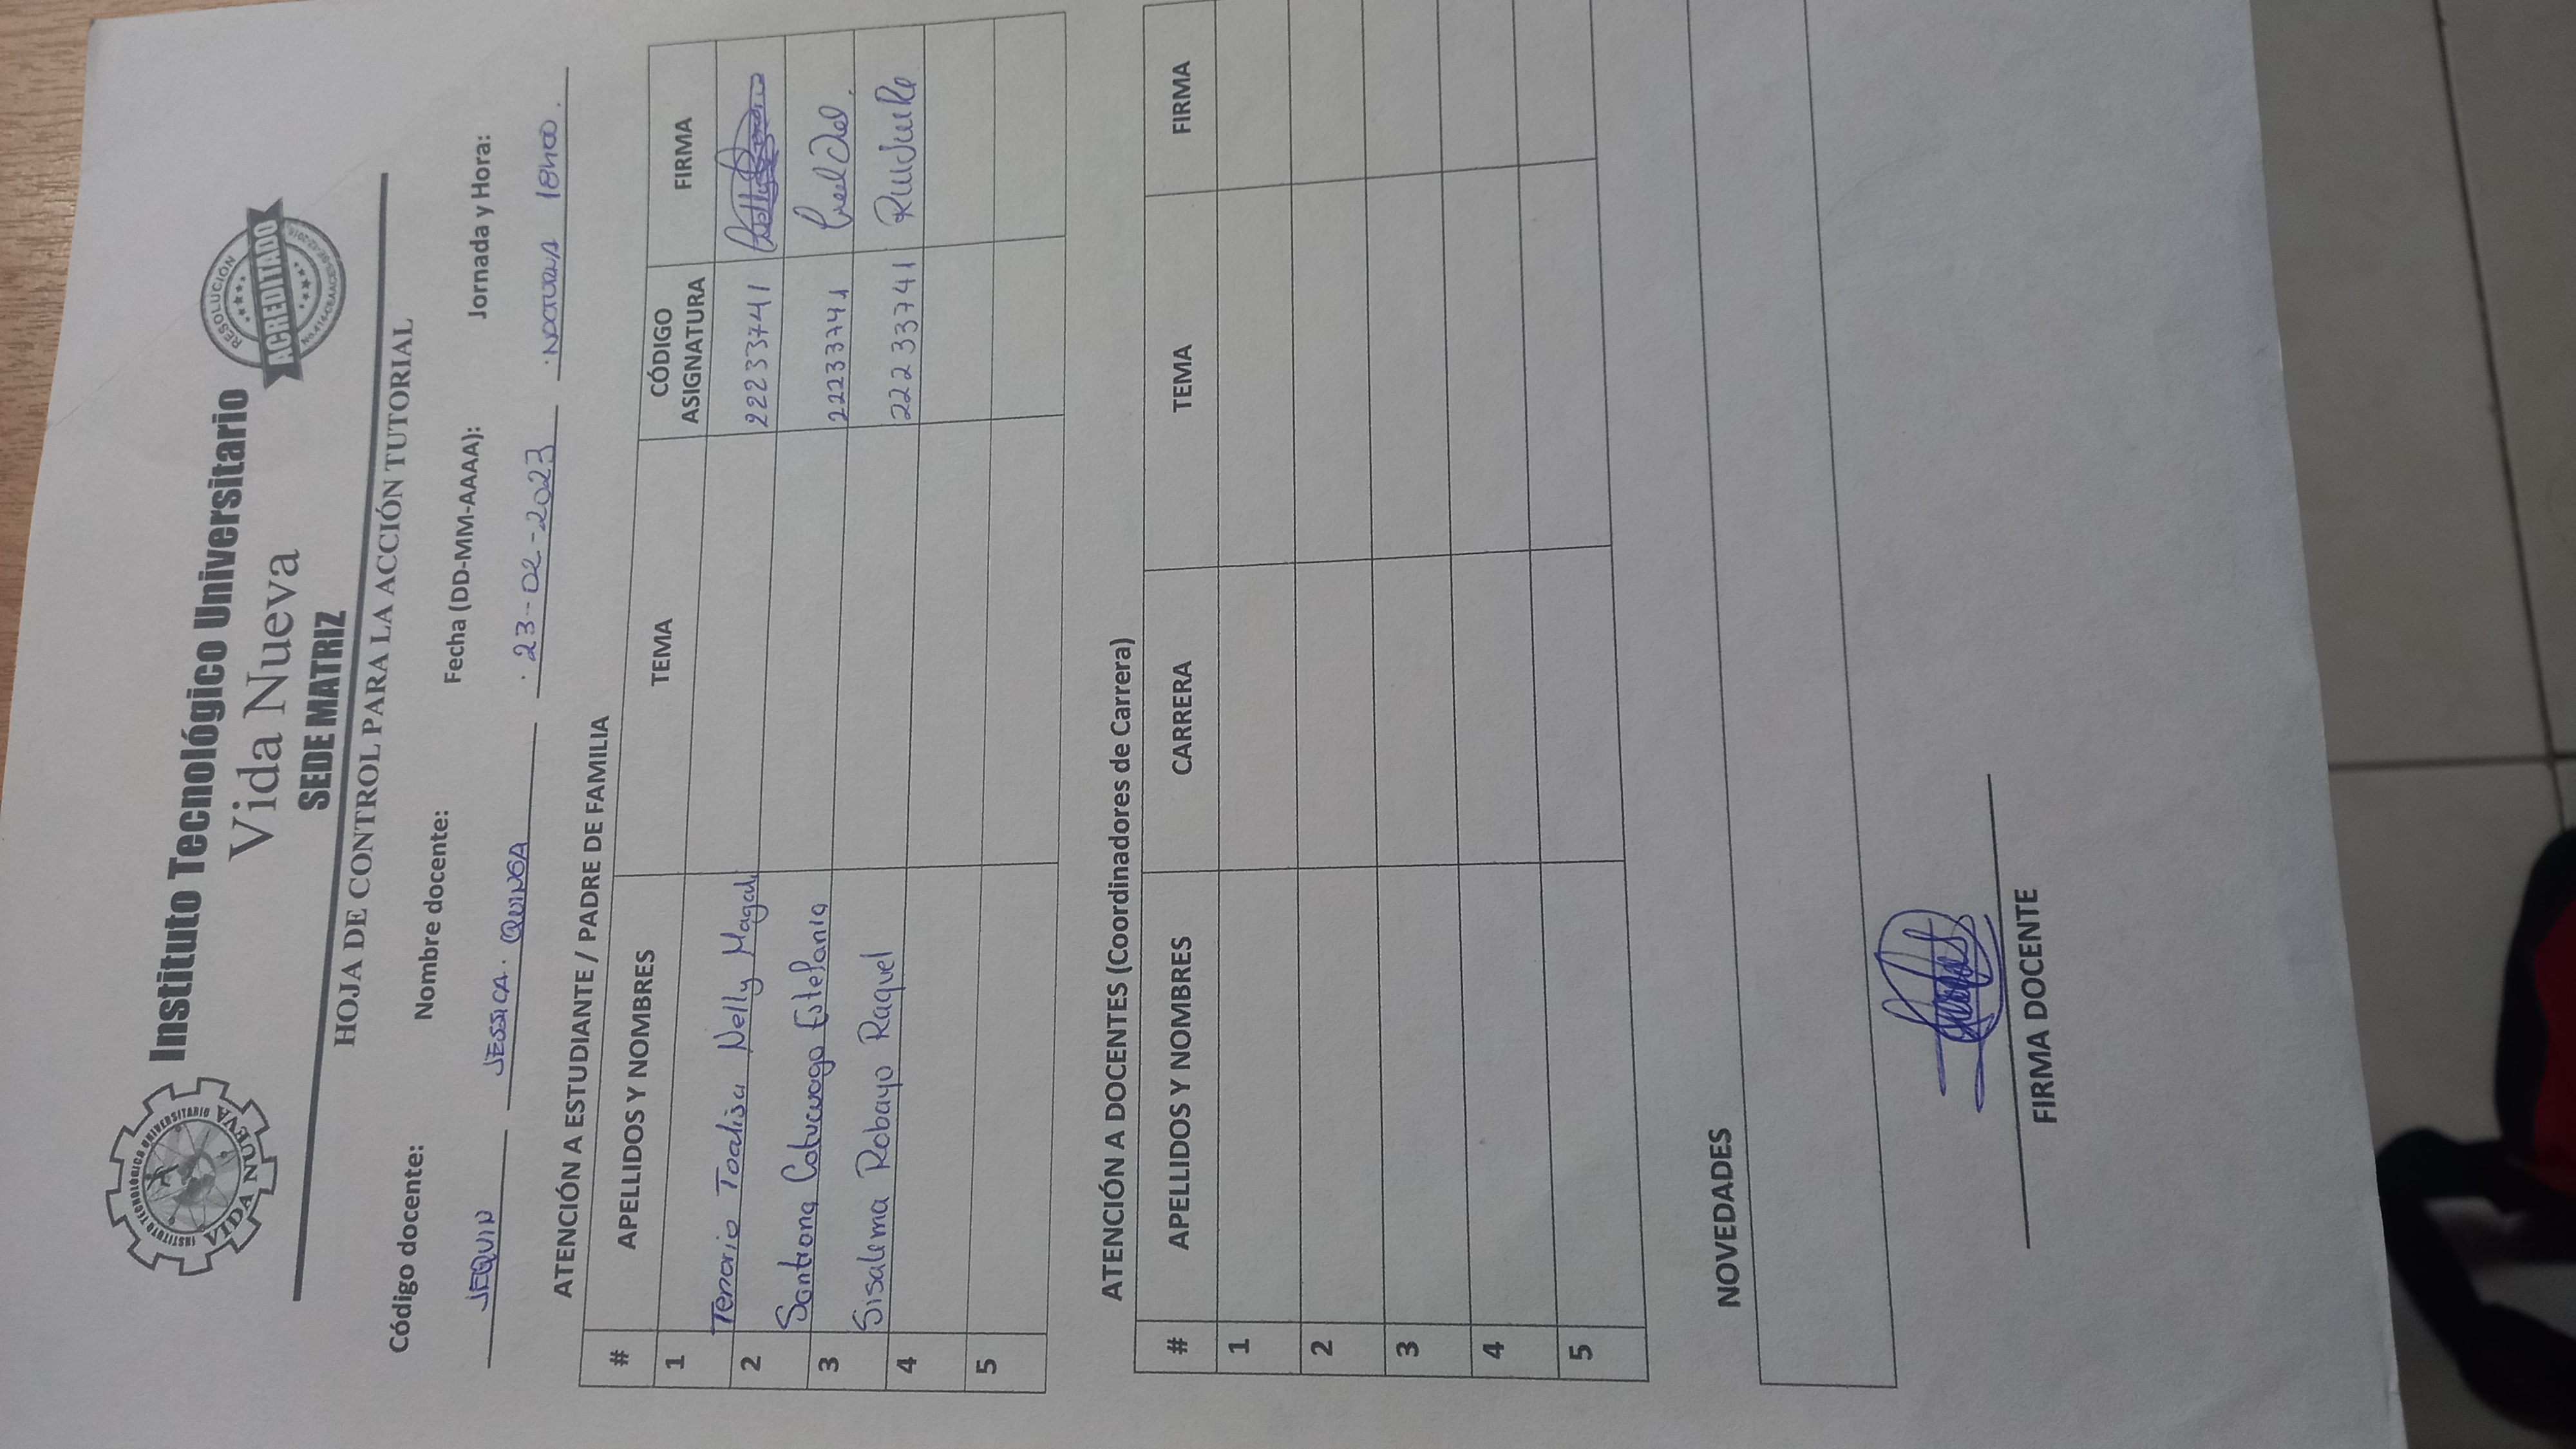 INSTITUTO TECNOLÓGICO UNIVERSITARIO
VIDA NUEVA
Instituto Tecnológico Universitario
Vida Nueva
SEDE MATRIZ
RESOLUCIÓN
ACREDITADO
HOJA DE CONTROL PARA LA ACCIÓN TUTORIAL
Código docente: Nombre docente: Fecha (DD-MM-AAAA): Jornada y Hora:
JEQUIN JESSICA. QUINGA 23-02-2023 NOCTURNA 18H00.
ATENCIÓN A ESTUDIANTE / PADRE DE FAMILIA
# APELLIDOS Y NOMBRES TEMA CÓDIGO ASIGNATURA FIRMA
1 Tenorio Toalisa Nelly Magali 22233741
2 Santrona Catucuago Estefania 22233741
3 Sisalema Robayo Raquel 22233741
4
5
ATENCIÓN A DOCENTES (Coordinadores de Carrera)
# APELLIDOS Y NOMBRES CARRERA TEMA FIRMA
1
2
3
4
5
NOVEDADES
FIRMA DOCENTE